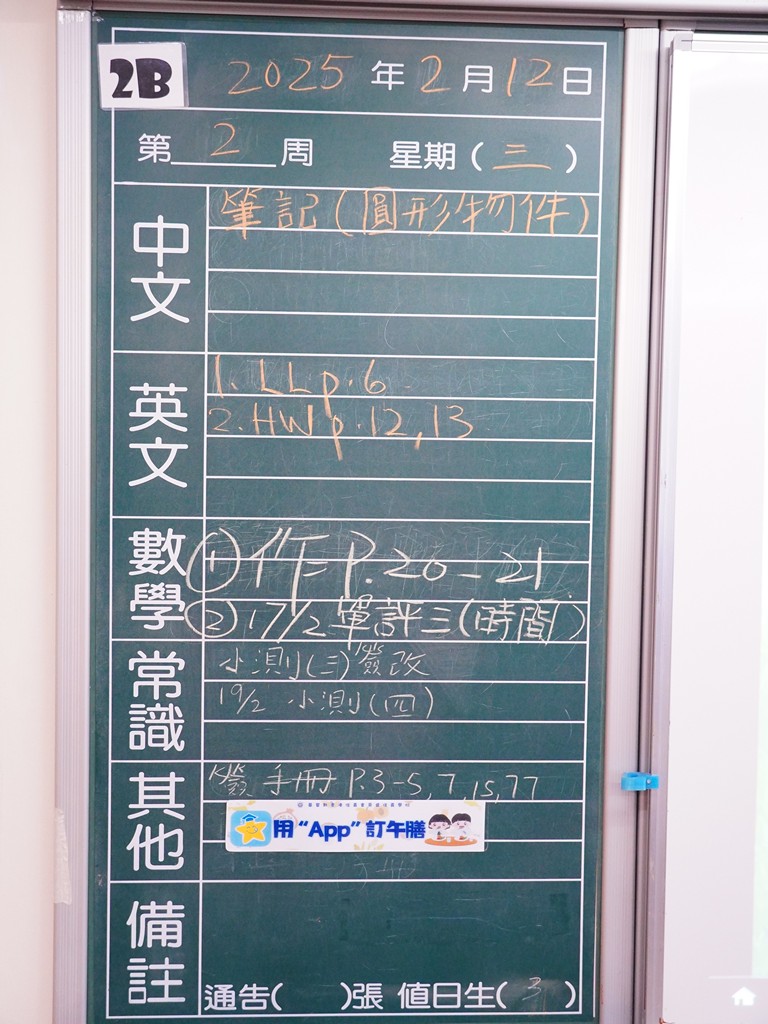 2B
2025年2月12日
第2周 星期(三)
中文
筆記(圓形物件)
英文
1. LL p.6
2. HW p.12,13
數學
① 作 P.20-21
② 17/2 單評三(時間)
常識
小測(三)簽改
19/2 小測(四)
其他
簽 手冊 P.3-5,7,15,77
用“App”訂午膳
備註
通告( )張 值日生(3)